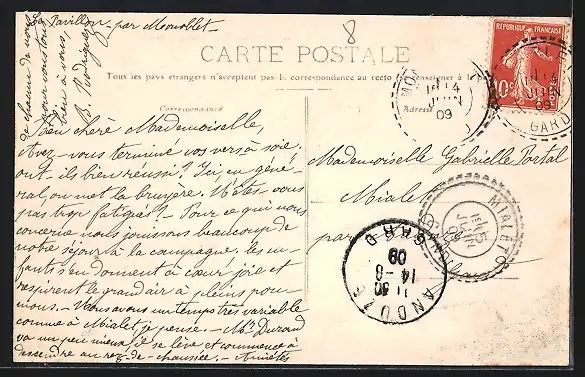 Le Pavillon - par Monoblet -
8
CARTE POSTALE
Tous les pays étrangers n'acceptent pas la correspondance au recto
Correspondance
Adresse
RÉPUBLIQUE FRANÇAISE
10c
14
JUIN
09
GARD
14
JUIN
09
Bien chère Mademoiselle,
Avez-vous terminé vos vers à soie.
ont-ils bien réussi? Ici, en géné-
ral, on met la bruyère. N'êtes-vous
pas trop fatiguée? - Pour ce qui nous
concerne nous jouissons beaucoup de
notre séjour à la campagne: les en-
fants s'en donnent à cœur joie et
respirent le grand air à pleins pou-
mons. - Nous avons un temps très variable
comme à Mialet, je pense. - Mr Durand
va un peu mieux, il se lève et commence à
descendre au rez-de-chaussée. - Amitiés
de chacun de nous
pour vous tous
bien à vous,
B. Rodriguez
Mademoiselle Gabrielle Portal
Mialet
par
MIALET
15
JUIN
09
ANDUZE
GARD
11 30
14-6
09